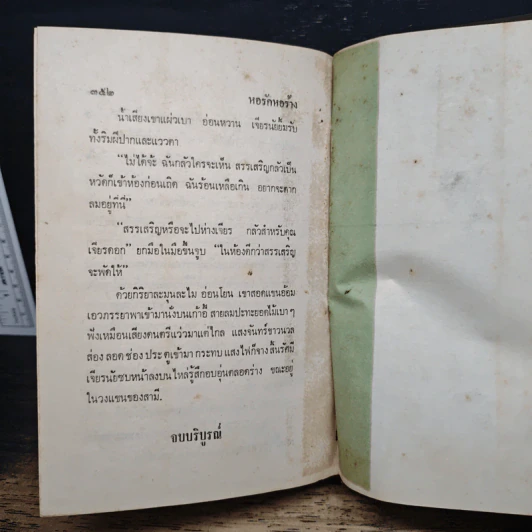 ๓๕๒
หอรักหอร้าง
น้ำเสียงเขาแผ่วเบา อ่อนหวาน เจียรนัยยิ้มรับ
ทั้งริมฝีปากและแววตา
"ไม่ได้จ้ะ ฉันกลัวใครจะเห็น สรรเสริญกลัวเป็น
หวัดก็เข้าห้องก่อนเถิด ฉันร้อนเหลือเกิน อยากจะตาก
ลมอยู่ที่นี่"
"สรรเสริญหรือจะไปห่างเจียร กลัวสำหรับคุณ
เจียรดอก" ยกมือในมือขึ้นจูบ "ในห้องดีกว่าสรรเสริญ
จะพัดให้"
ด้วยกิริยาละมุนละไม อ่อนโยน เขาสอดแขนอ้อม
เอวภรรยาพาเข้ามานั่งบนเก้าอี้ สายลมปะทะยอดไม้เบา ๆ
ฟังเหมือนเสียงดนตรีแว่วมาแต่ไกล แสงจันทร์ขาวนวล
ส่อง ลอด ช่อง ประตูเข้ามา กระทบ แสงไฟก็จาง สิ้นรัศมี
เจียรนัยซบหน้าลงบนไหล่รู้สึกอบอุ่นตลอดร่าง ขณะอยู่
ในวงแขนของสามี.
จบบริบูรณ์